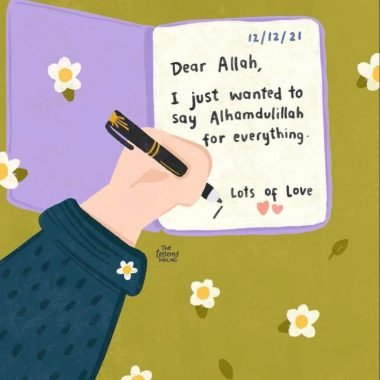 12/12/21
Dear Allah,
I just wanted to
say Alhamdulillah
for everything.
Lots of Love
The
Lettered